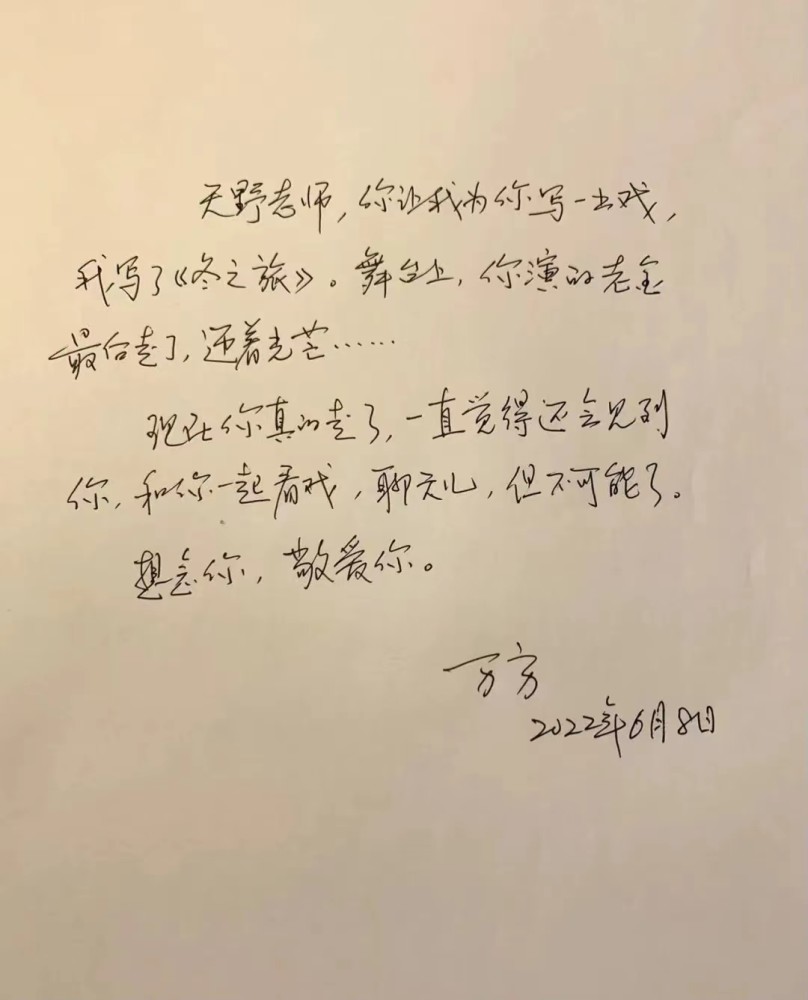 天野老师，你让我为你写一出戏，
我写了《冬之旅》。舞台上，你演的老金
最后走了，迎着光芒……
现在你真的走了，一直觉得还会见到
你，和你一起看戏，聊天儿，但不可能了。
想念你，敬爱你。
万方
2022年6月8日